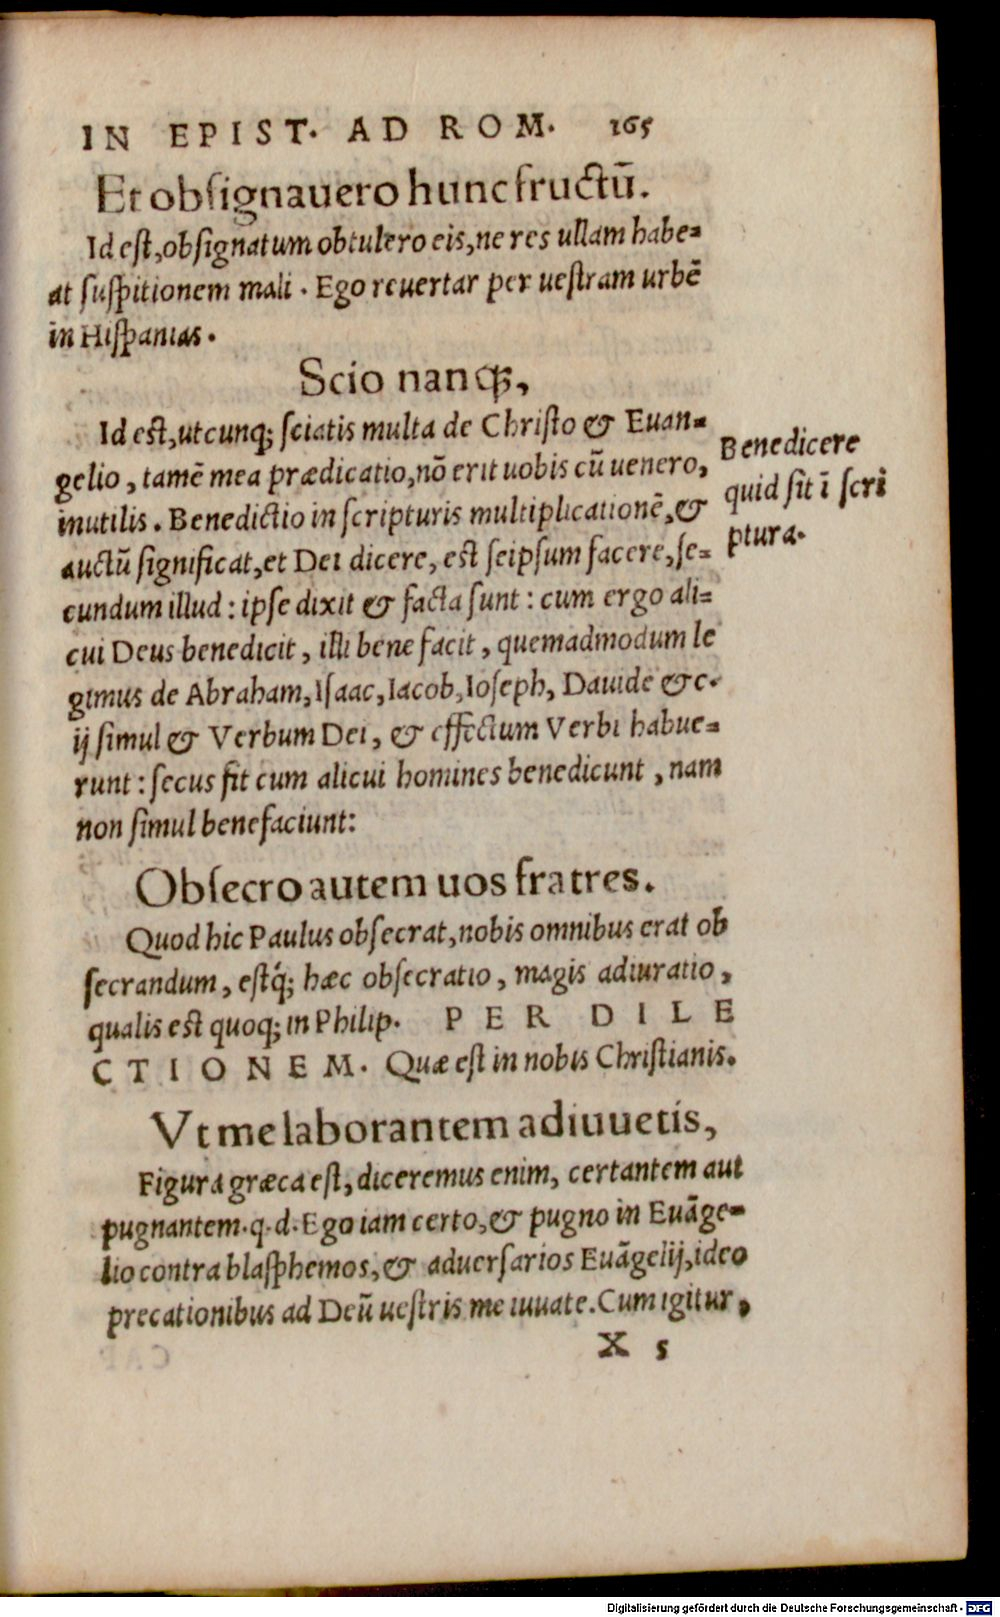 IN EPIST. AD ROM. 165
Et obsignauero hunc fructū.
Id est, obsignatum obtulero eis, ne res ullam habe-
at suspitionem mali. Ego reuertar per uestram urbē
in Hispanias.
Scio nanq;,
Id est, utcunq; sciatis multa de Christo & Euan-
gelio, tamē mea prædicatio, nō erit uobis cū uenero,
inutilis. Benedictio in scripturis multiplicationē, &
auctū significat, et Dei dicere, est seipsum facere, se-
cundum illud: ipse dixit & facta sunt: cum ergo ali-
cui Deus benedicit, illi bene facit, quemadmodum le
gimus de Abraham, Isaac, Iacob, Ioseph, Dauide &c.
ij simul & Verbum Dei, & effectum Verbi habue-
runt: secus fit cum alicui homines benedicunt, nam
non simul benefaciunt:
Benedicere
quid sit ī scri
ptura.
Obsecro autem uos fratres.
Quod hic Paulus obsecrat, nobis omnibus erat ob
secrandum, estq́; hæc obsecratio, magis adiuratio,
qualis est quoq; in Philip. PER DILE
CTIONEM. Quæ est in nobis Christianis.
Vt me laborantem adiuuetis,
Figura græca est, diceremus enim, certantem aut
pugnantem. q. d. Ego iam certo, & pugno in Euāge-
lio contra blasphemos, & aduersarios Euāgelij, ideo
precationibus ad Deū uestris me iuuate. Cum igitur,
X 5
Digitalisierung gefördert durch die Deutsche Forschungsgemeinschaft - DFG